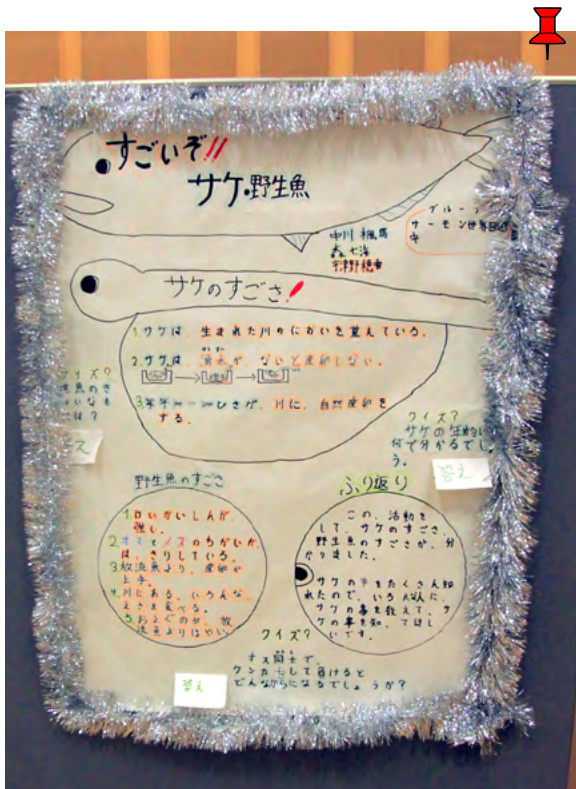 すごいぞ!!
サケ・野生魚
中川 楓馬
森 七海
グルー
サーモン世界
サケのすごさ!
1.サケは、生まれた川のにおいを覚えている。
2.サケは、湧水が、ないと産卵しない。
3.毎年 ひきが、川に、自然産卵を
する。
イズ?
魚のさ
いなも
は?
え
クイズ?
サケの年れいは
何で分かるでしょ
う。
答え
野生魚のすごさ
1.けいかいしんが、
強い。
2.オスとメスのちがいが、
は、きりしている。
3.放流魚より、産卵が
上手。
4.川にある、いろんな、
えさを食べる。
5.およぐのが、放
流魚よりはやい。
ふり返り
この、活動を
して、サケのすごさ、
野生魚のすごさが、分
かりました。
サケの事をたくさん知
れたので、いろんな人に、
サケの事を教えて、サ
ケの事を知、てほし
いです。
クイズ?
オス同士で、
ケンカをして負けると
どんなからになるでしょうか?
答え